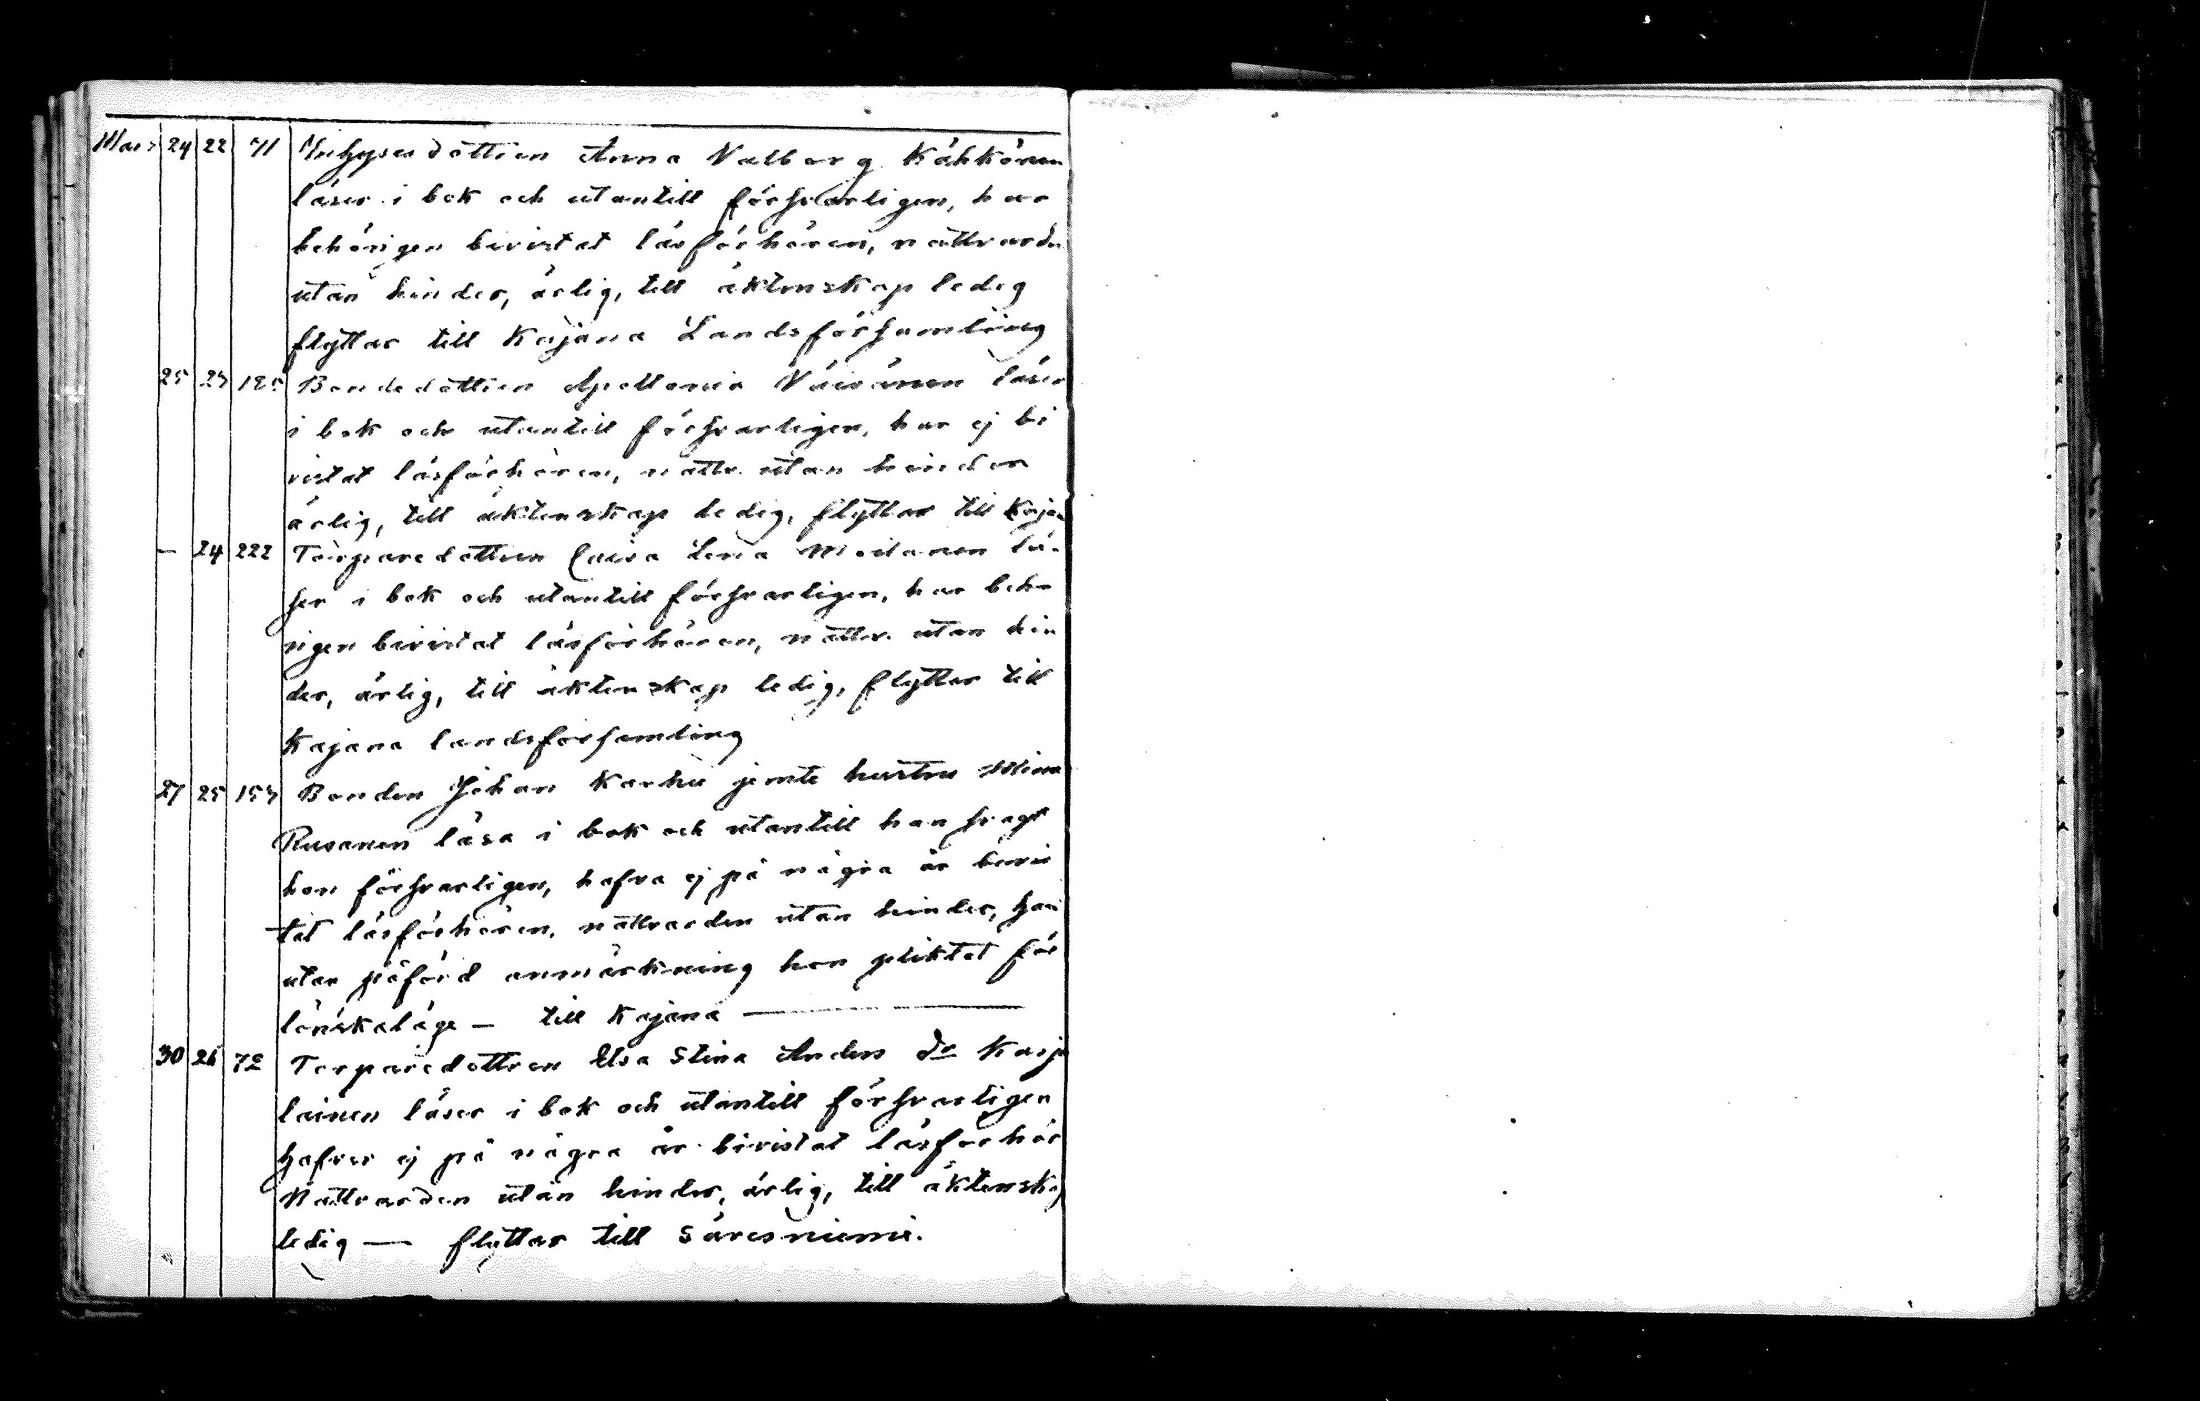 Mars 24 22 71 Inhysesdottren Anna Valborg Kähkönen
läser i bok och utantill försvarligen, har
behörigen bevistat läsförhören, nattvarden
utan hinder, ärlig, till äktenskap ledig
flyttar till Kajana Landsförsamling
25 23 185 Bondedottren Apollonia Väisänen läser
i bok och utantill försvarligen, har ej be
vistat läsförhören, nattv. utan hinder
ärlig, till äktenskap ledig, flyttar till Kajana
— 24 222 Torparedottren Caisa Lena Moilanen lä-
ser i bok och utantill försvarligen, har behö
rigen bevistat läsförhören, nattv. utan hin
der, ärlig, till äktenskap ledig, flyttar till
Kajana landsförsamling
27 25 157 Bonden Johan Karhu jemte hustru
Rusanen läsa i bok och utantill han svagt
hon försvarligen, hafva ej på några år bevis
tat läsförhören, nattvarden utan hinder, han
utan påförd anmärkning hon pliktat för
lönskaläge — till Kajana —
30 26 72 Torparedottren Elsa Stina Anders dr Karja
lainen läser i bok och utantill försvarligen
hafver ej på några år bevistat läsförhör
Nattvarden utan hinder, ärlig, till äktenskap
ledig — flyttar till Säresniemi.